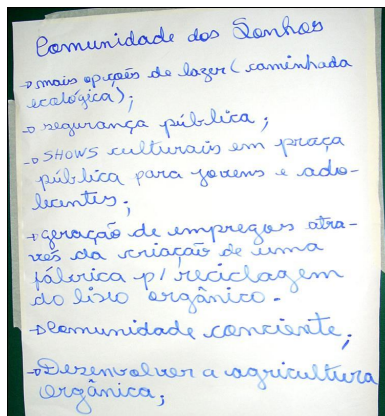 Comunidade dos Sonhos
→ mais opções de lazer (caminhada
ecológica);
→ segurança pública;
→ SHOWS culturais em praça
pública para jovens e ado-
lecentes;
→ geração de empregos atra-
vés da criação de uma
fábrica p/ reciclagem
do lixo orgânico.
→ Comunidade conciente;
→ Desenvolver a agricultura
orgânica;